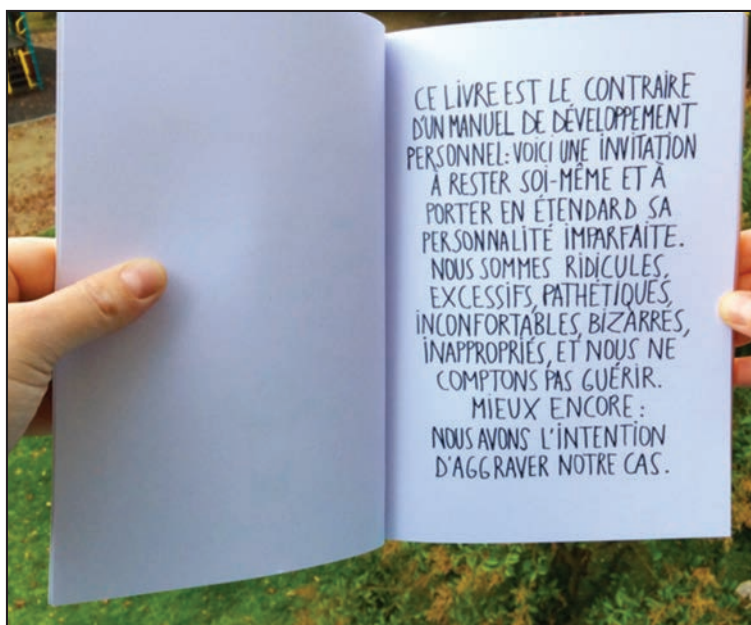 CE LIVRE EST LE CONTRAIRE
D'UN MANUEL DE DÉVELOPPEMENT
PERSONNEL: VOICI UNE INVITATION
À RESTER SOI-MÊME ET À
PORTER EN ÉTENDARD SA
PERSONNALITÉ IMPARFAITE.
NOUS SOMMES RIDICULES,
EXCESSIFS, PATHÉTIQUES,
INCONFORTABLES, BIZARRES,
INAPPROPRIÉS, ET NOUS NE
COMPTONS PAS GUÉRIR.
MIEUX ENCORE :
NOUS AVONS L'INTENTION
D'AGGRAVER NOTRE CAS.